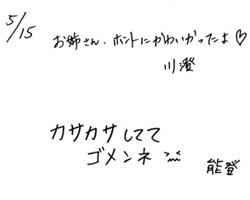 5/15
お姉さん、ホントにかわいかったよ♡
川澄
カサカサしてて
ゴメンネ
能登